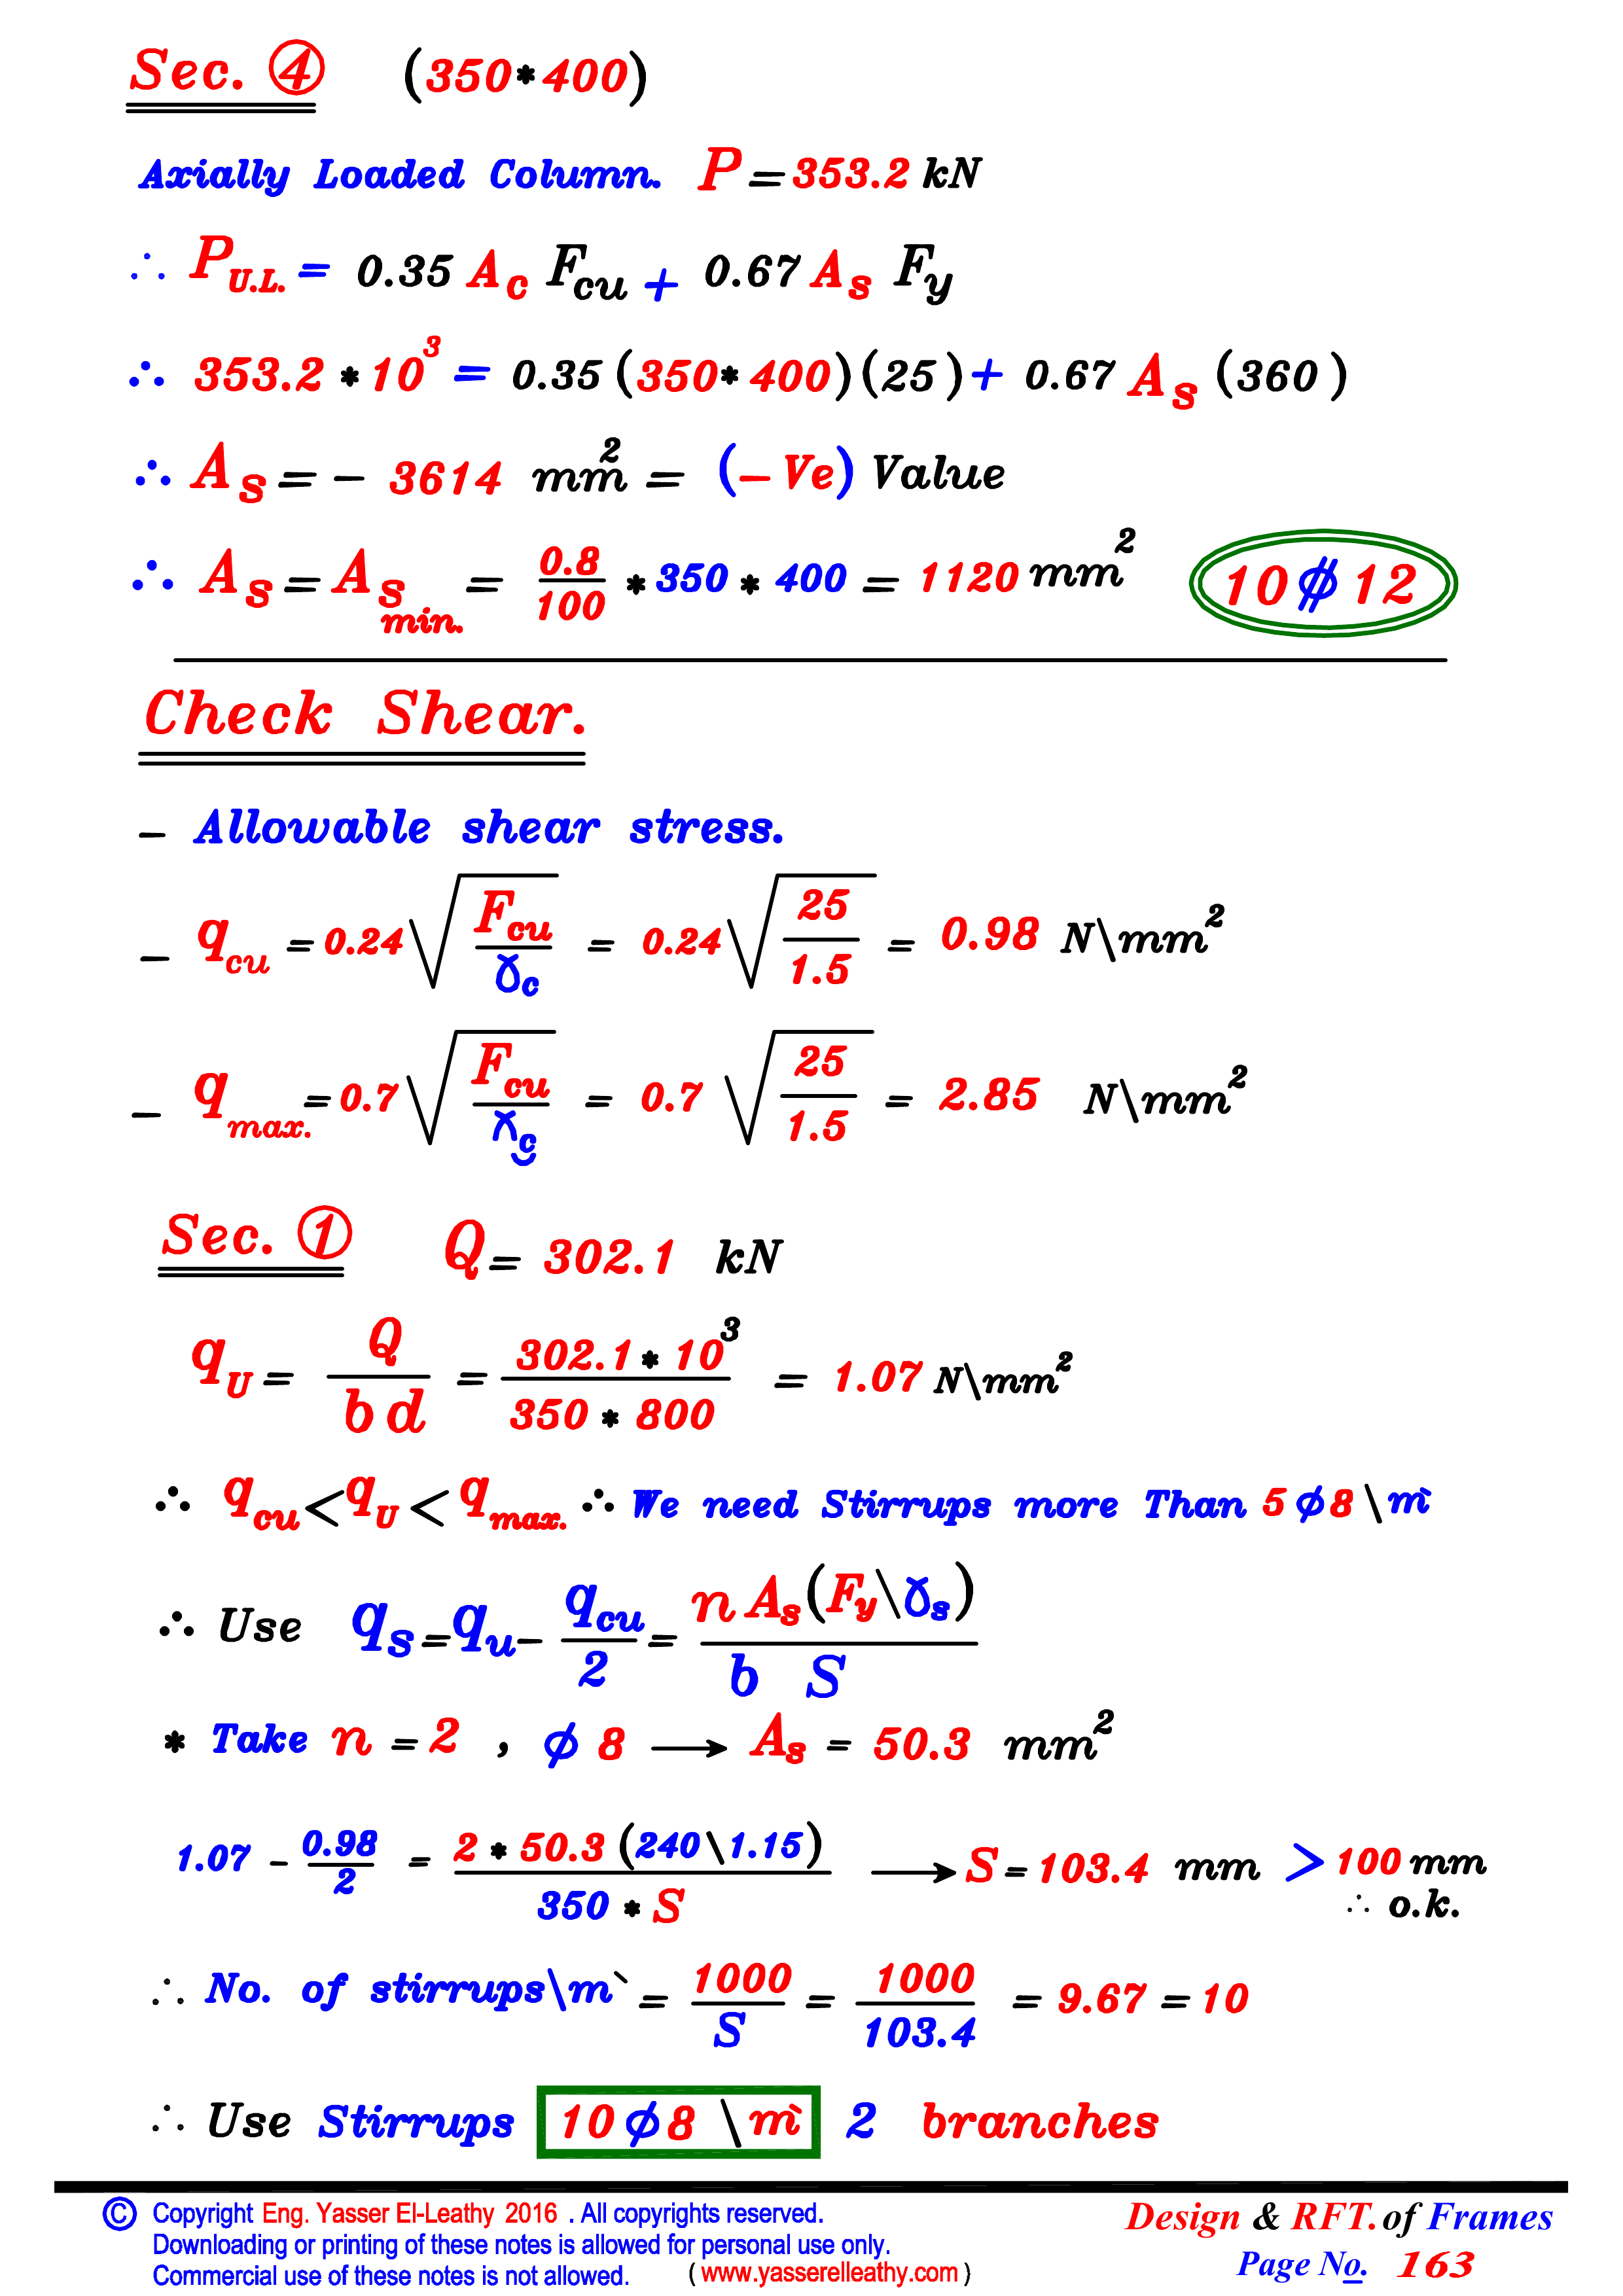 Sec. ④ (350*400)
Axially Loaded Column. P = 353.2 kN
∴ P U.L. = 0.35 Ac Fcu + 0.67 As Fy
∴ 353.2 * 10³ = 0.35 (350*400)(25) + 0.67 As (360)
∴ As = - 3614 mm² = (-Ve) Value
∴ As = As min. = 0.8/100 * 350 * 400 = 1120 mm² 10 ⌀ 12
Check Shear.
- Allowable shear stress.
- qcu = 0.24 √(Fcu/γc) = 0.24 √(25/1.5) = 0.98 N\mm²
- qmax. = 0.7 √(Fcu/γc) = 0.7 √(25/1.5) = 2.85 N\mm²
Sec. ① Q = 302.1 kN
qU = Q/(b d) = (302.1 * 10³)/(350 * 800) = 1.07 N\mm²
∴ qcu < qU < qmax. ∴ We need Stirrups more Than 5 ϕ 8 \ m`
∴ Use qs = qu - qcu/2 = n As (Fy\γs)/(b S)
* Take n = 2 , ϕ 8 → As = 50.3 mm²
1.07 - 0.98/2 = 2 * 50.3 (240\1.15)/(350 * S) → S = 103.4 mm > 100 mm
∴ o.k.
∴ No. of stirrups\m` = 1000/S = 1000/103.4 = 9.67 = 10
∴ Use Stirrups 10 ϕ 8 \ m` 2 branches
© Copyright Eng. Yasser El-Leathy 2016 . All copyrights reserved.
Downloading or printing of these notes is allowed for personal use only.
Commercial use of these notes is not allowed. ( www.yasserelleathy.com )
Design & RFT. of Frames
Page No. 163